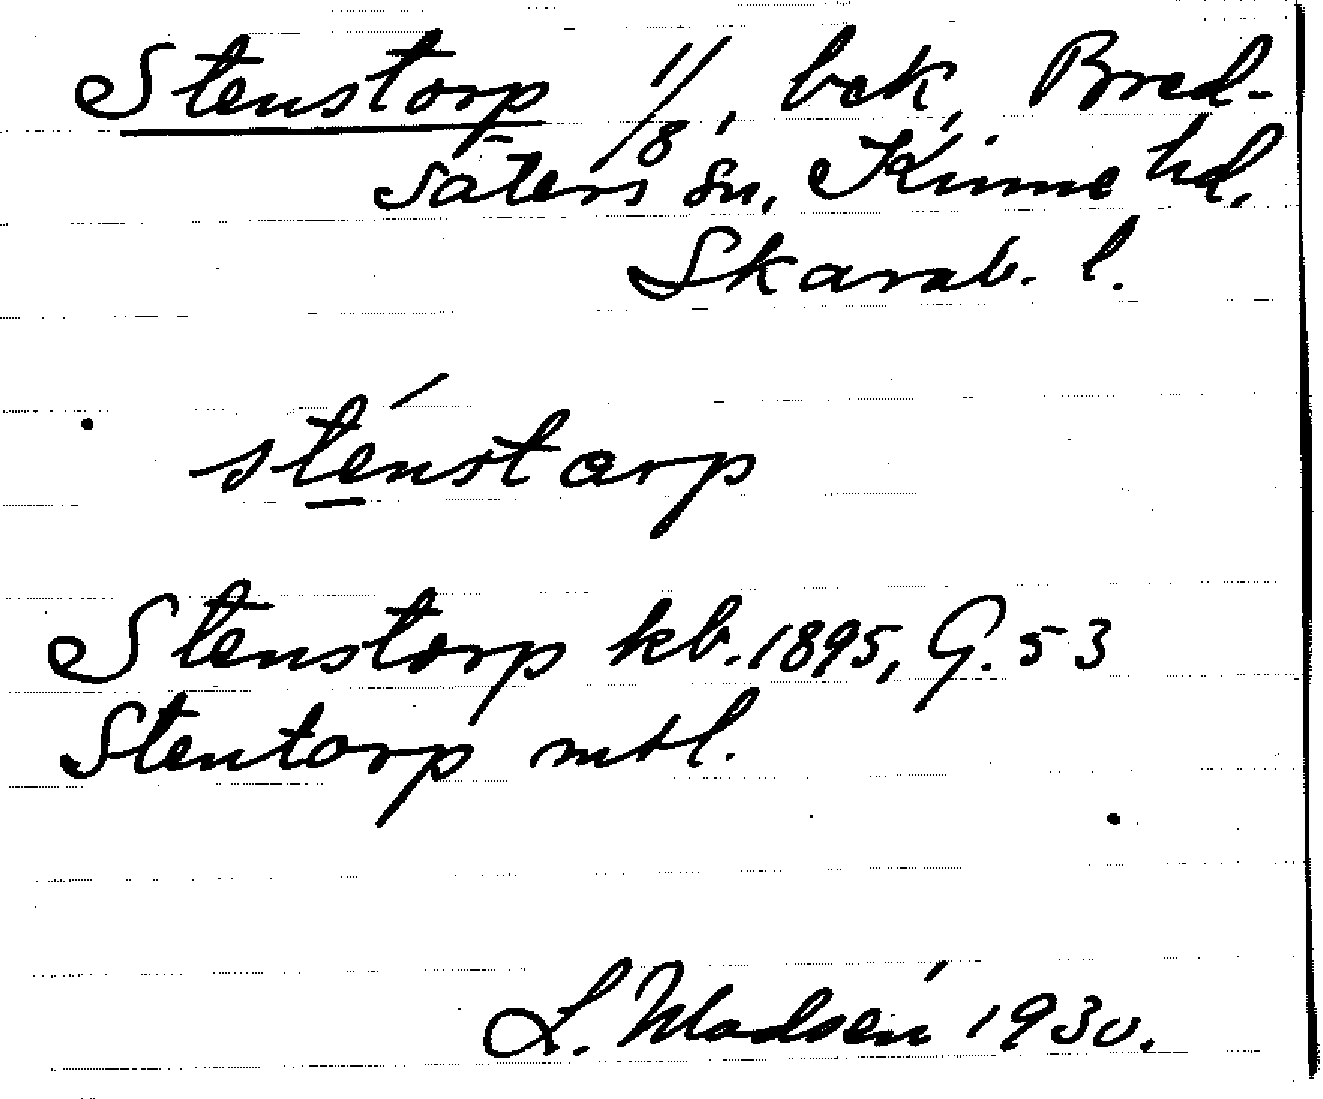 Stenstorp 1/8, bck, Bred-
säters sn, Kinne hd.
Skarab. l.
sténstorp
Stenstorp kb. 1895, G. 53
Stentorp mtl.
L. Modsén 1930.